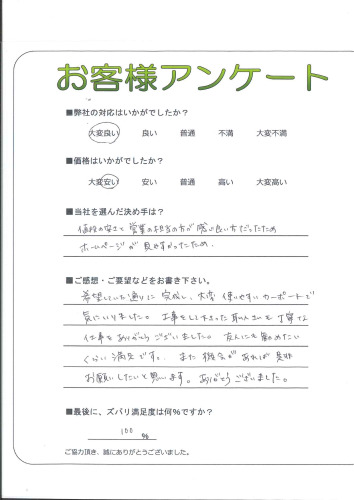 お客様アンケート
■弊社の対応はいかがでしたか？
大変良い 良い 普通 不満 大変不満
■価格はいかがでしたか？
大変安い 安い 普通 高い 大変高い
■当社を選んだ決め手は？
価格の安さと営業の担当の方が感じ良い方だったため
ホームページが見やすかったため.
■ご感想・ご要望などをお書き下さい。
希望していた通りに完成し、大変使いやすいカーポートで
気にいりました。工事をして下さった職人さんも丁寧な
仕事をありがとうございました。友人にも勧めたい
くらい満足です。また機会があれば是非
お願いしたいと思います。ありがとうございました。
■最後に、ズバリ満足度は何％ですか？
100 %
ご協力頂き、誠にありがとうございました。